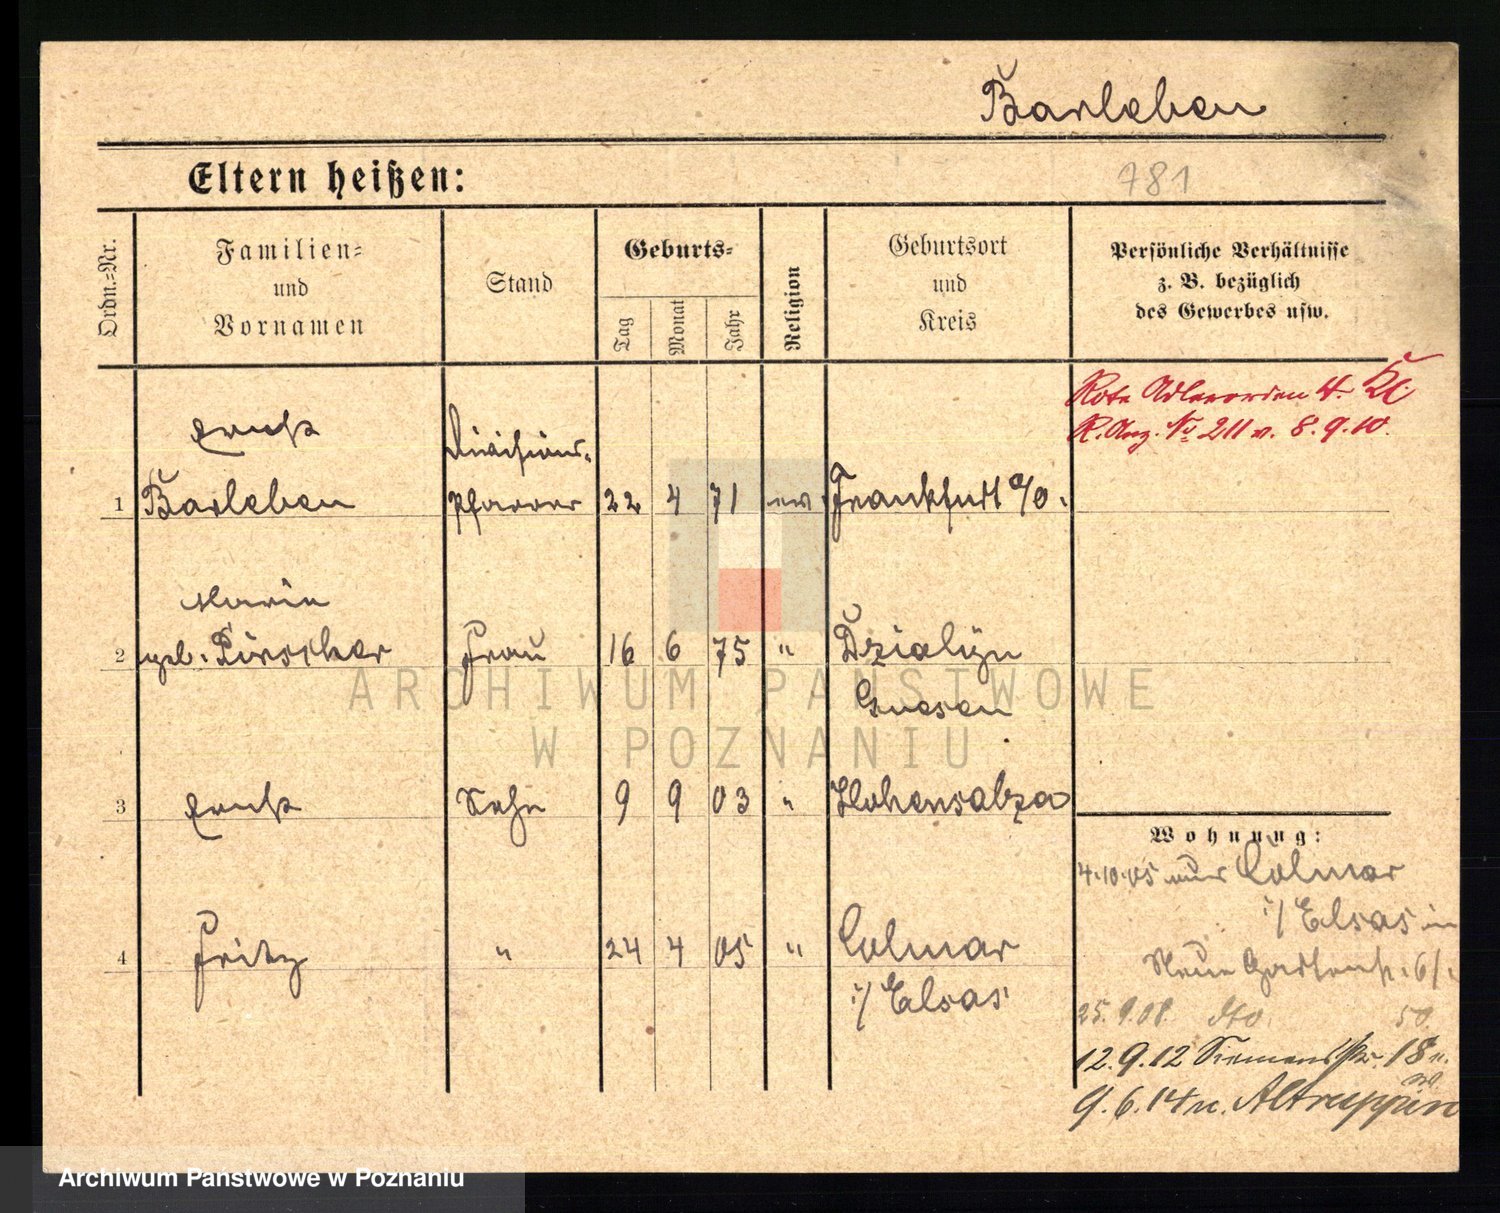 Barleben
Eltern heißen:
781
Ordn.-Nr.
Familien-
und
Vornamen
Stand
Geburts-
Tag
Monat
Jahr
Religion
Geburtsort
und
Kreis
Persönliche Verhältnisse
z. B. bezüglich
des Gewerbes usw.
Rote Adlerorden 4. Kl.
R. Anz. No 211 v. 8.9.10.
Ernst
Divisions-
1 Barleben Pfarrer 22 4 71 ev Frankfurt a/O.
Marie
2 geb. Frau 16 6 75 " Dzialyn
Gnesen
3 Ernst Sohn 9 9 03 " Hohensalza
Wohnung:
4.10.05 aus Colmar
i/Elsas in
Neue Gartenstr. 61.
4 Fritz " 24 4 05 " Colmar
i/Elsas
25.9.08. dto. 50.
12.9.12 Siemensstr. 18
9.6.14 n. Altruppin
ARCHIWUM PAŃSTWOWE
W POZNANIU
Archiwum Państwowe w Poznaniu